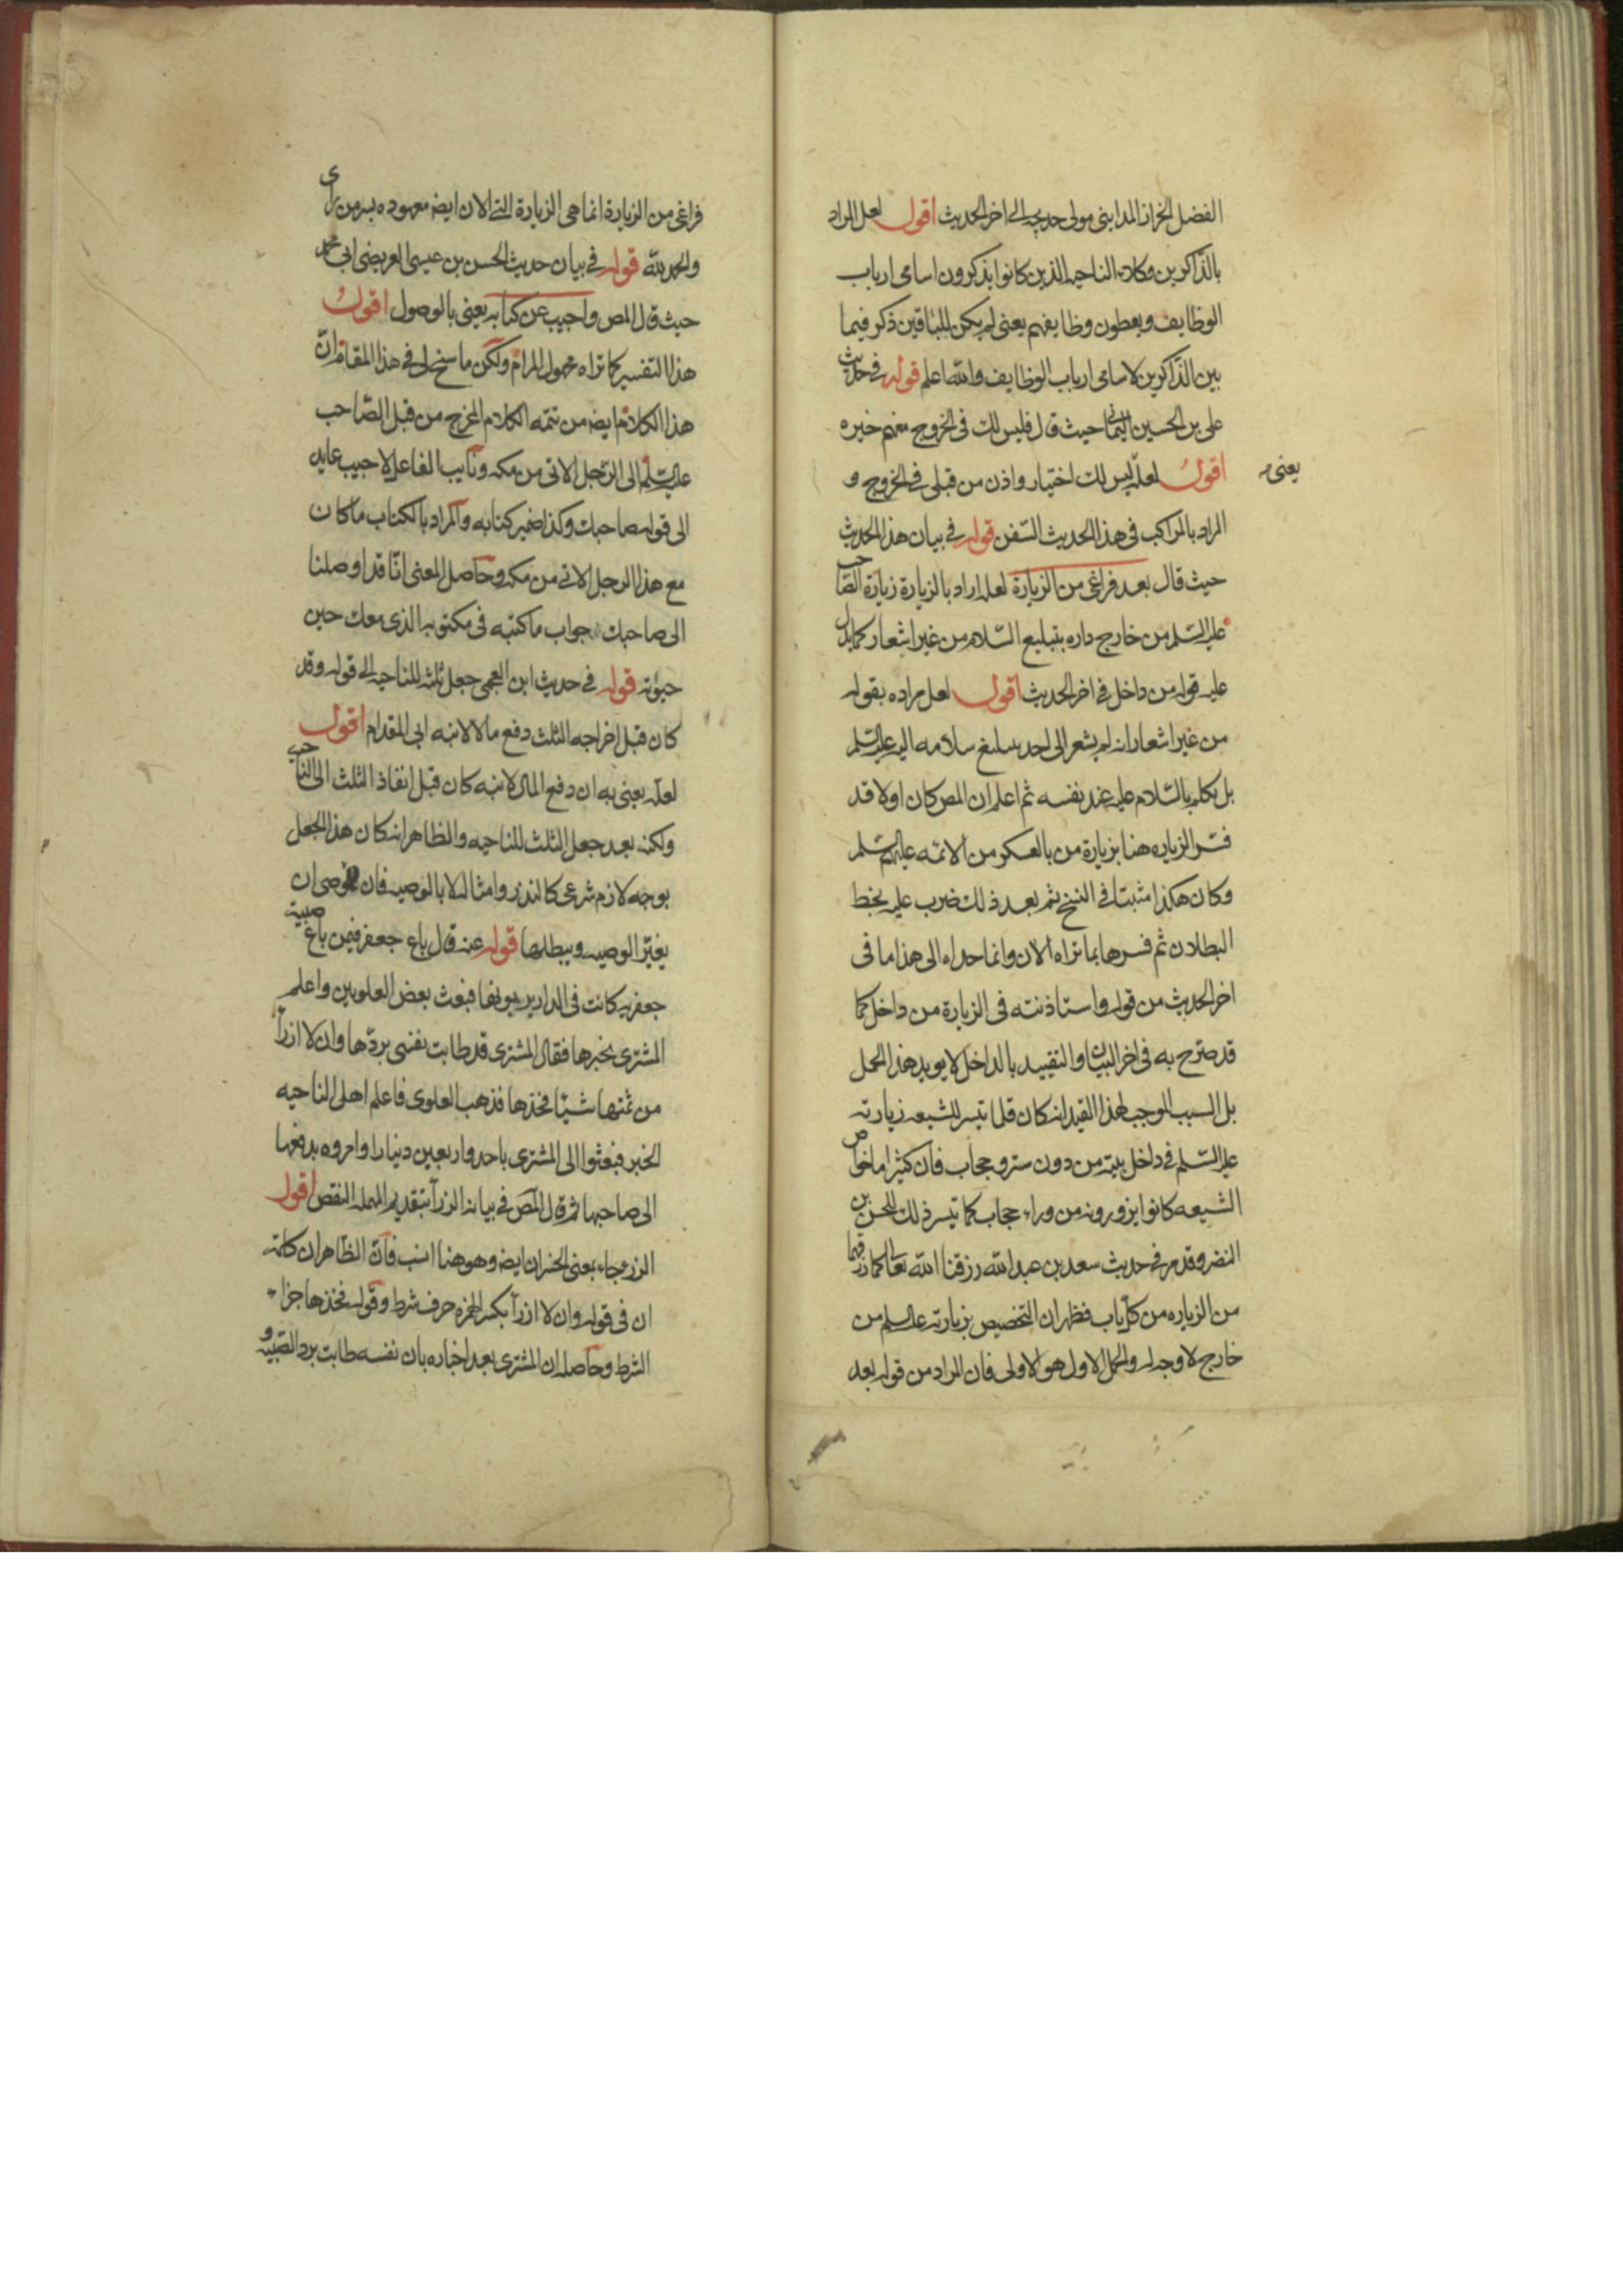 الفضل الخزاز المداینی مولی خدیجه الی اخر الحدیث اقول لعل المراد
بالذاکرین وکلاء الناحیه الذین کانوا یذکرون اسامی ارباب
الوظایف ویعطون وظایفهم یعنی لم یکن للباقین ذکر فیما
بین الذاکرین لاسامی ارباب الوظایف والله اعلم قوله فی حدیث
علی بن الحسین الیمانی حیث قال فلیس لک فی الخروج معهم خیره
یعنی
اقول لعله لیس لک اختیار واذن من قبلی فی الخروج و
المراد بالمراکب فی هذا الحدیث السفن قوله فی بیان هذا الحدیث
حیث قال بعد فراغی من الزیارة لعله اراد بالزیارة زیارة الصاحب
علیه السلم من خارج داره بتبلیع السلام من غیر اشعار کما یدل
علیه قوله من داخل فی اخر الحدیث اقول لعل مراده بقوله
من غیر اشعار انه لم یشعر الی احد یبلغ سلامه الیه علیه السلم
بل تکلم بالسلام علیه عند نفسه ثم اعلم ان المص کان اولا قد
فسر الزیاره هنا بزیارة من بالعسکر من الائمه علیهم السلم
وکان هکذا مثبتا فی النسخ ثم بعد ذلک ضرب علیه بخط
البطلان ثم فسرها بما تراه الان وانما حداه الی هذا ما فی
اخر الحدیث من قوله واستاذنته فی الزیارة من داخل کما
قد صرح به فی اخر البیان والتقیید بالداخل لا یوید هذا الحمل
بل السبب الموجب لهذا القید انه کان قلما تیسر للشیعه زیارته
علیه السلم فی داخل بیته من دون ستر وحجاب فان کثیرا ما خواص
الشیعه کانوا یزورونه من وراء حجاب کما تیسر ذلک للحسن بن
النضر وقد مر فی حدیث سعد بن عبد الله رزقنا الله تعالی کما رزقهما
من الزیاره من کل باب فظهر ان التخصیص بزیارته علیه السلم من
خارج لا وجه له والحمل الاول هو الاولی فان المراد من قوله بعد
فراغی من الزیارة انما هی الزیارة التی الان ایضه معهوده بسر من رای
والحمد لله قوله فی بیان حدیث الحسن بن عیسی العریضی ابی محمد
حیث قال المص واجیب عن کتابه یعنی بالوصول اقول
هذا التفسیر کما تراه مجهول المرام ولکن ما سنح لی فی هذا المقام ان
هذا الکلام ایضه من تتمه الکلام المخرج من قبل الصاحب
علیه السلم الی الرجل الاتی من مکه ونایب الفاعل لاجیب عاید
الی قوله صاحبک وکذا ضمیر کتابه والمراد بالکتاب ما کان
مع هذا الرجل الاتی من مکه وحاصل المعنی انا قد اوصلنا
الی صاحبک جواب ما کتبه فی مکتوبه الذی معک حین
حیوته قوله فی حدیث ابن العجمی جعل ثلثه للناحیه الی قوله وقد
کان قبل اخراجه الثلث دفع مالا لابنه ابی المقدام اقول
لعله یعنی به ان دفع المال لابنه کان قبل انفاذ الثلث الی الناحیه
ولکنه بعد جعل الثلث للناحیه والظاهر انه کان هذا الجعل
بوجه لازم شرعی کالنذر وامثاله لا بالوصیه فان للموصی ان
یغیر الوصیه ویبطلها قوله عنه قال باع جعفر فیمن باع صبیة
جعفریه کانت فی الدار یربونها فبعث بعض العلویین واعلم
المشتری بخبرها فقال المشتری قد طابت نفسی بردها وان لا ارزأ
من ثمنها شیئا فخذها فذهب العلوی فاعلم اهل الناحیه
الخبر فبعثوا الی المشتری باحد واربعین دینارا وامروه بدفعها
الی صاحبها ثم قال المص فی بیانه الرزأ بتقدیم المهمله النقص اقول
الرزء جاء بمعنی الخسران ایضه وهو هنا انسب فان الظاهر ان کلمه
ان فی قوله وان لا ارزأ بکسر الهمزه حرف شرط وقوله فخذها جزاء
الشرط وحاصله ان المشتری بعد اخباره بان نفسه طابت برد الصبیه و